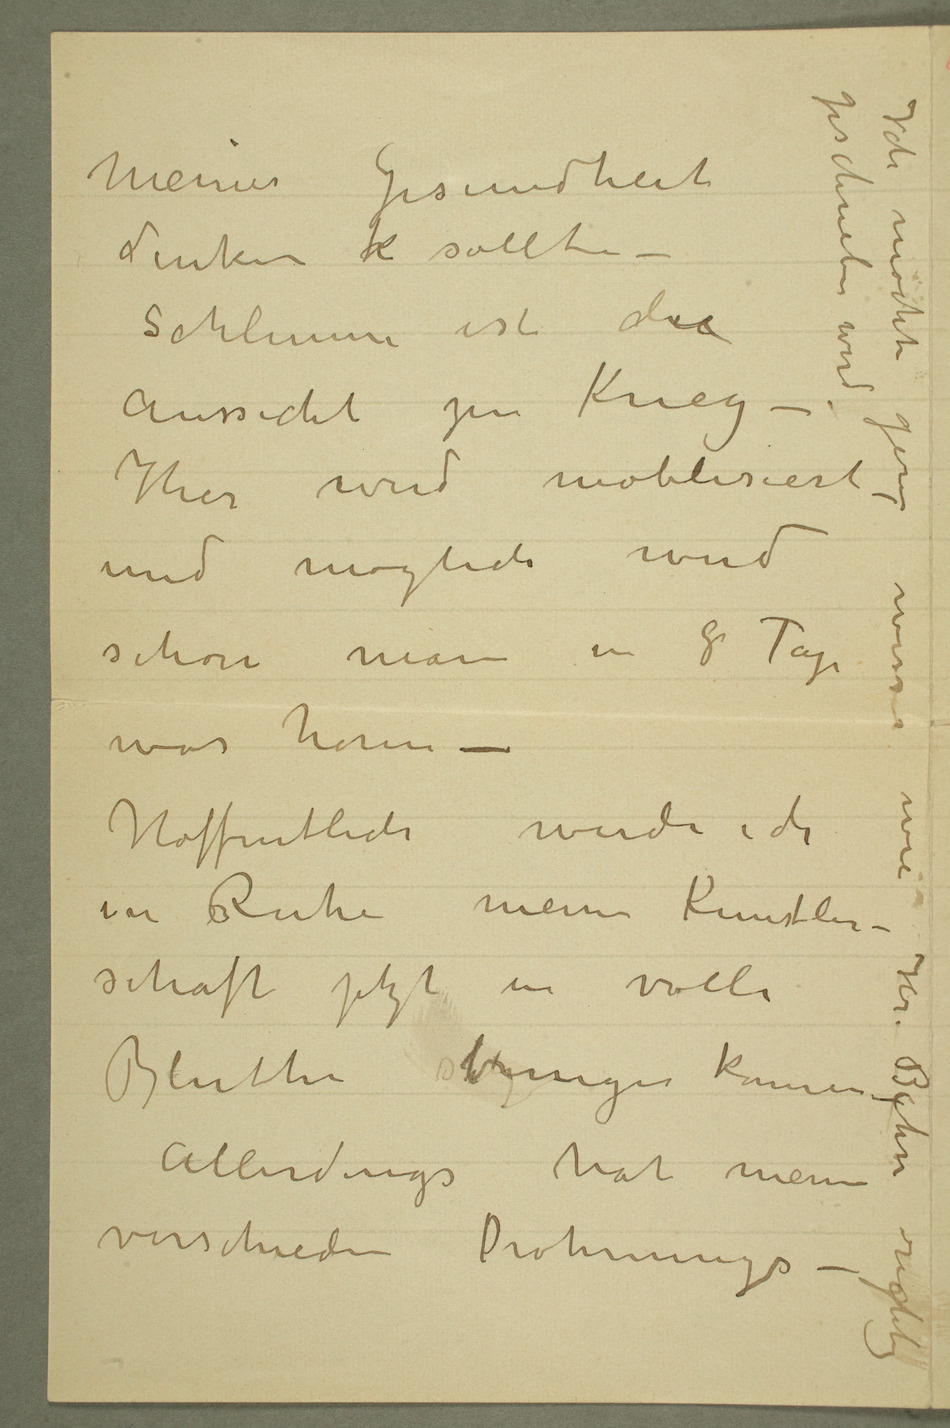 meiner Gesundheit
denken k sollte –
Schlimm ist die
Aussicht zu Krieg –
Hier wird moblisiert –
und möglich wird
schon man in 8 Tage
was hören –
Hoffentlich werde ich
in Ruhe meine Künstler-
schaft jetzt in volle
Bluthe bringen können –
Allerdings hat meine
verschieden Drohnungs –
Ich möchte gerne wissen wie Hr. Bahr richtig
geschrieben wird